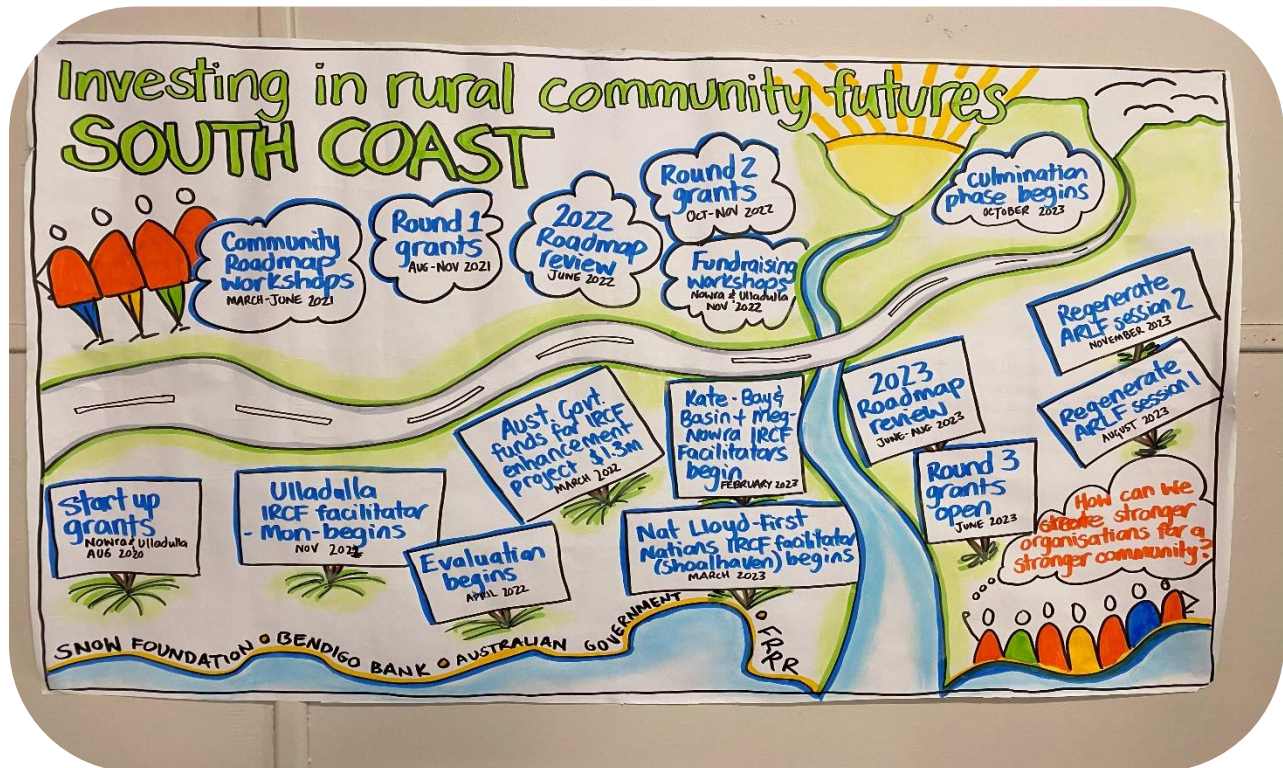 Investing in rural community futures
SOUTH COAST
Community
Roadmap
workshops
MARCH-JUNE 2021
Round 1
grants
AUG-NOV 2021
2022
Roadmap
review
JUNE 2022
Round 2
grants
OCT-NOV 2022
Fundraising
workshops
Nowra & Ulladulla
NOV 2022
Culmination
phase begins
OCTOBER 2023
Start up
grants
Nowra & Ulladulla
AUG 2020
Ulladulla
IRCF facilitator
- Mon-begins
NOV
Evaluation
begins
APRIL 2022
Aust. Govt.
funds for IRCF
enhancement
project $1.3m
MARCH 2022
Kate-Bay &
Basin + Meg-
Nowra IRCF
Facilitators
begin
FEBRUARY 2023
Nat Lloyd-First
Nations IRCF facilitator
(Shoalhaven) begins
MARCH 2023
2023
Roadmap
review
JUNE-AUG 2023
Round 3
grants
open
JUNE 2023
Regenerate
ARLF session 2
NOVEMBER 2023
Regenerate
ARLF session 1
AUGUST 2023
How can we
stronger
organisations for a
stronger community?
SNOW FOUNDATION • BENDIGO BANK • AUSTRALIAN GOVERNMENT • FRRR